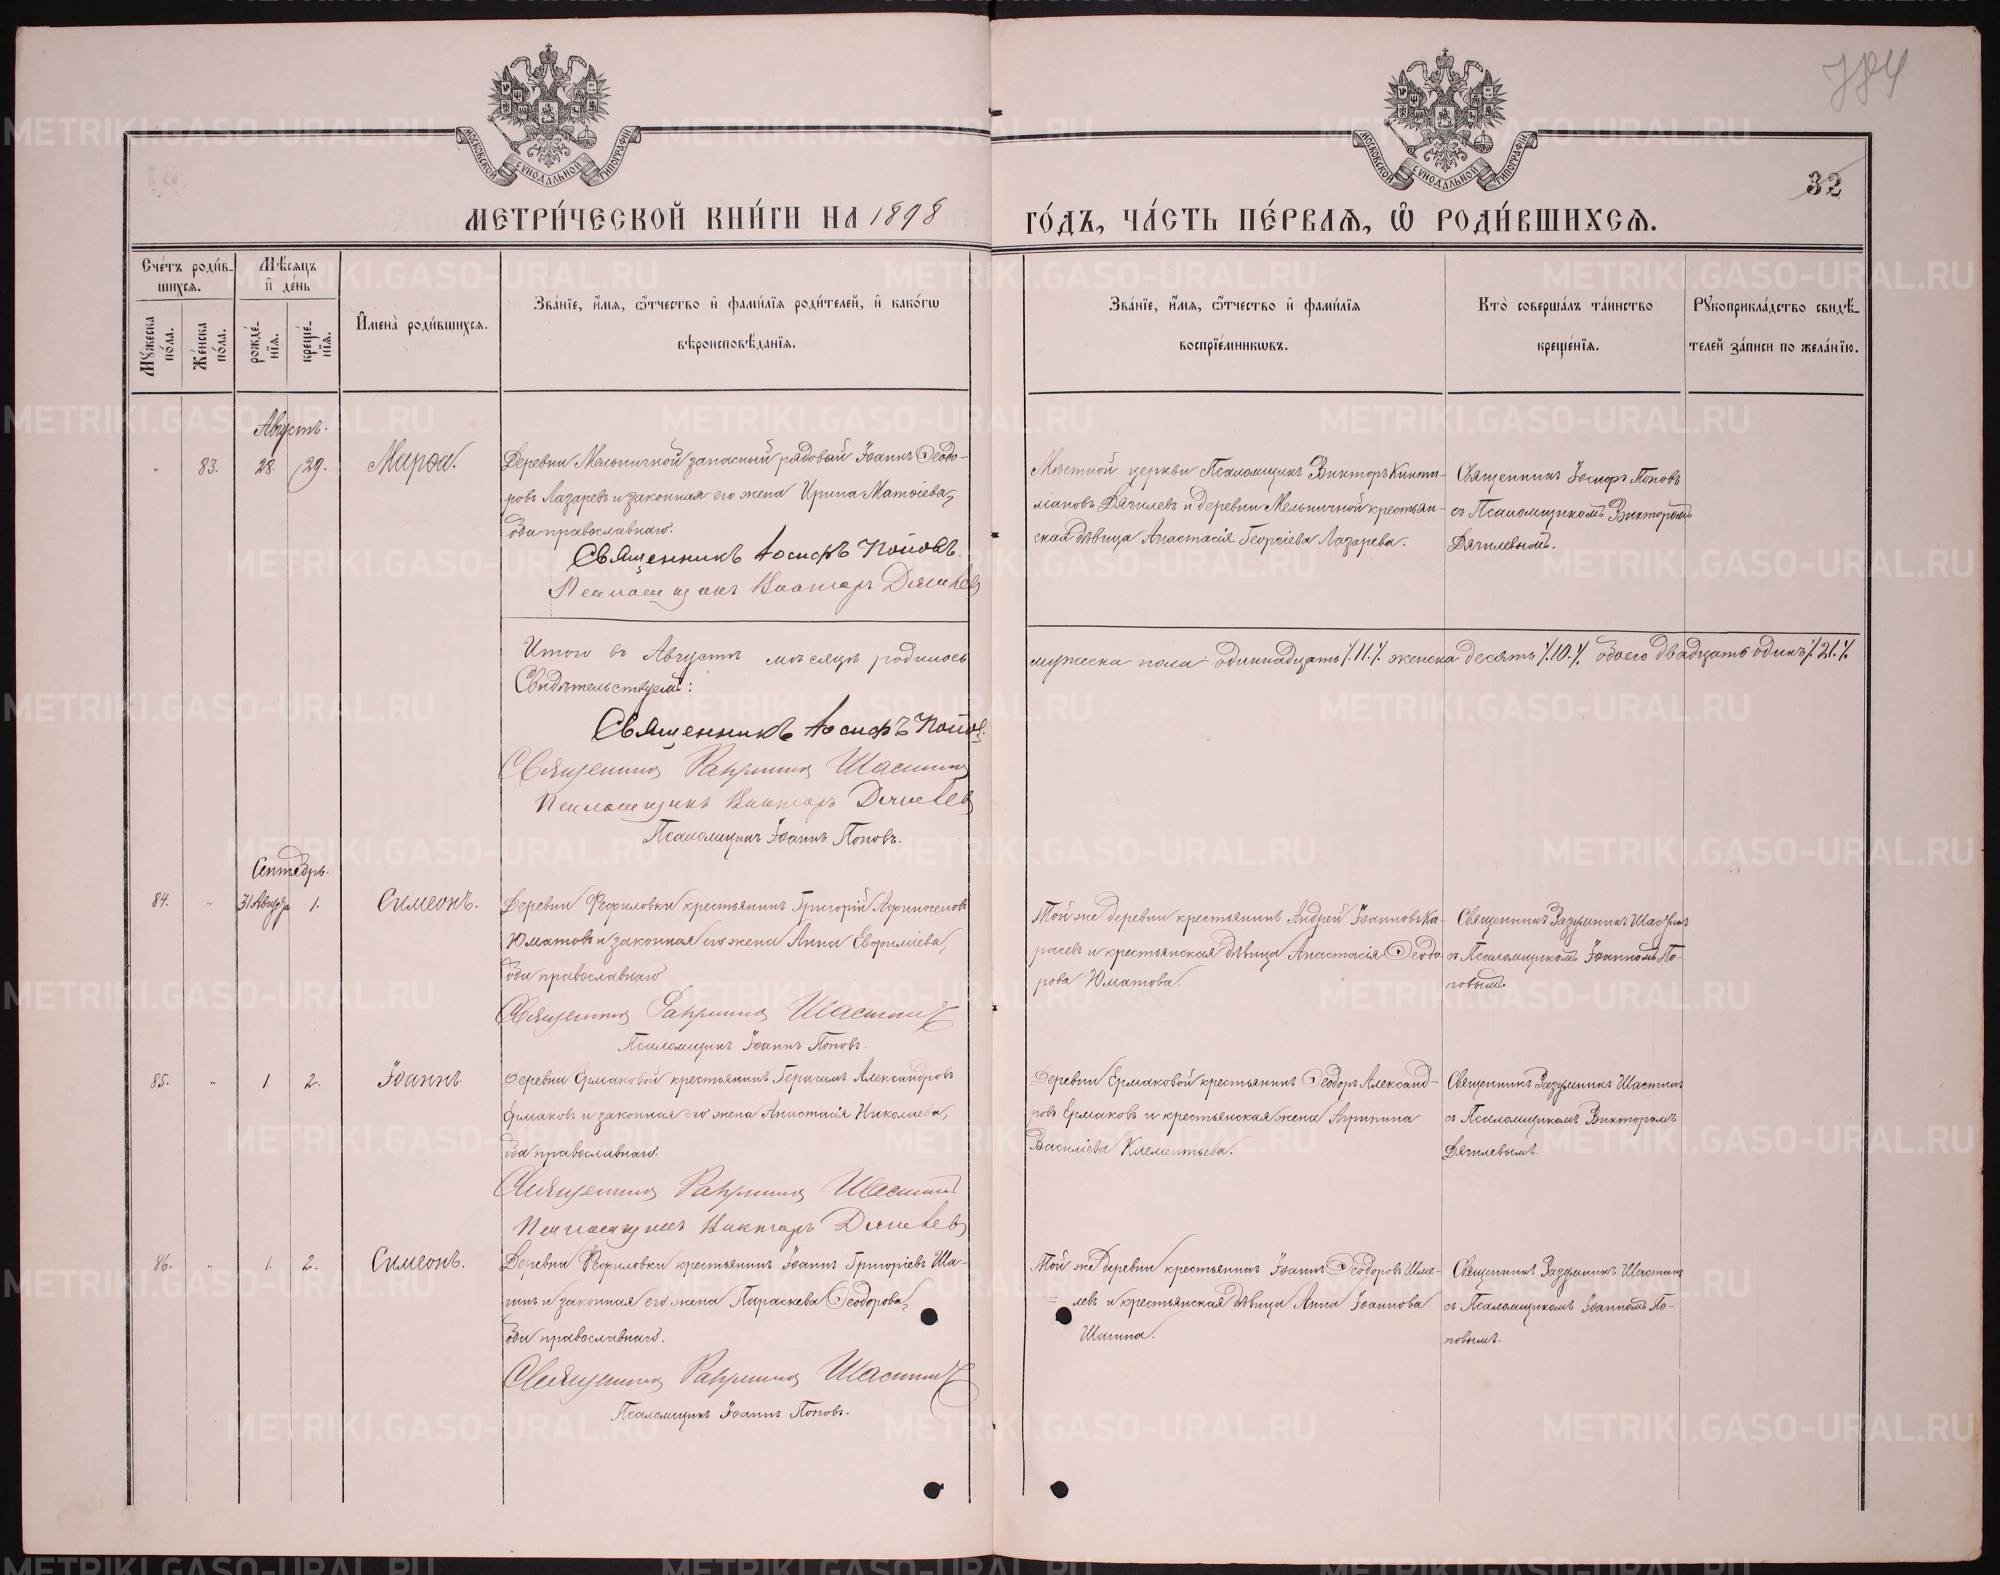 784
32
МОСКОВСКОЙ СУНОДАЛЬНОЙ ТИПОГРАФІИ
МОСКОВСКОЙ СУНОДАЛЬНОЙ ТИПОГРАФІИ
МЕТРИ́ЧЕСКОЙ КНИ́ГИ НА 1898 ГО́ДЪ, ЧА́СТЬ ПЕ́РВАѦ, Ѡ҆ РОДИ́ВШИХСѦ.
Сче́тъ роди́в-
шихсѧ.
Мꙋ́жеска по́ла.
Же́нска по́ла.
Мѣ́сѧцъ и҆ де́нь
рожде́-
нїѧ.
креще́-
нїѧ.
И҆мена̀ роди́вшихсѧ.
Зва́нїе, и҆́мѧ, ѻ҆́тчество и҆ фами́лїѧ роди́телей, и҆ како́гѡ
вѣроисповѣ́данїѧ.
Зва́нїе, и҆́мѧ, ѻ҆́тчество и҆ фами́лїѧ
воспрїе́мникѡвъ.
Кто̀ соверша́лъ та́инство
креще́нїѧ.
Рꙋкоприкла́дство свидѣ́-
телей за́писи по жела́нїю.
Августъ.
" 83. 28. 29. Марѳа.
Деревни Мельничной запасный рядовой Іоаннъ Ѳеодо-
ровъ Лазаревъ и законная его жена Ирина Матѳіева,
оба православнаго.
Священникъ Іосифъ Поповъ.
Псаломщикъ Викторъ Дягилевъ
Мѣстной церкви Псаломщикъ Викторъ Кинти-
ліановъ Дягилевъ и деревни Мельничной крестьян-
ская дѣвица Анастасія Георгіева Лазарева.
Священникъ Іосифъ Поповъ
съ Псаломщикомъ Викторомъ
Дягилевымъ.
Итого въ Августѣ мѣсяцѣ родилось мужеска пола одиннадцать /.11./. женска десять /.10./. обоего двадцать одинъ /.21./.
Свидѣтельствуемъ:
Священникъ Іосифъ Поповъ.
Священникъ Разумникъ Шастинъ
Псаломщикъ Викторъ Дягилевъ
Псаломщикъ Іоаннъ Поповъ.
Сентябрь.
84. " 31 Августа 1. Симеонъ.
Деревни Фефиловки крестьянинъ Григорій Аѳиногеновъ
Юматовъ и законная его жена Анна Евфиміева,
оба православнаго
Священникъ Разумникъ Шастинъ
Псаломщикъ Іоаннъ Поповъ.
Той же деревни крестьянинъ Андрей Іоанновъ Ка-
расевъ и крестьянская дѣвица Анастасія Ѳеодо-
рова Юматова.
Священникъ Разумникъ Шастинъ
съ Псаломщикомъ Іоанномъ По-
повымъ.
85. " 1. 2. Іоаннъ.
Деревни Ермаковой крестьянинъ Герасимъ Александровъ
Ермаковъ и законная его жена Анастасія Николаева,
оба православнаго.
Священникъ Разумникъ Шастинъ
Псаломщикъ Викторъ Дягилевъ
Деревни Ермаковой крестьянинъ Ѳеодоръ Александ-
ровъ Ермаковъ и крестьянская жена Агрипина
Василіева Клементьева.
Священникъ Разумникъ Шастинъ
съ Псаломщикомъ Викторомъ
Дягилевымъ.
86. " 1. 2. Симеонъ.
Деревни Фефиловки крестьянинъ Іоаннъ Григоріевъ Ша-
гинъ и законная его жена Параскева Ѳеодорова,
оба православнаго.
Священникъ Разумникъ Шастинъ
Псаломщикъ Іоаннъ Поповъ.
Той же деревни крестьянинъ Іоаннъ Ѳеодоровъ Шме-
левъ и крестьянская дѣвица Анна Іоаннова
Шагина.
Священникъ Разумникъ Шастинъ
съ Псаломщикомъ Іоанномъ По-
повымъ.
METRIKI.GASO-URAL.RU